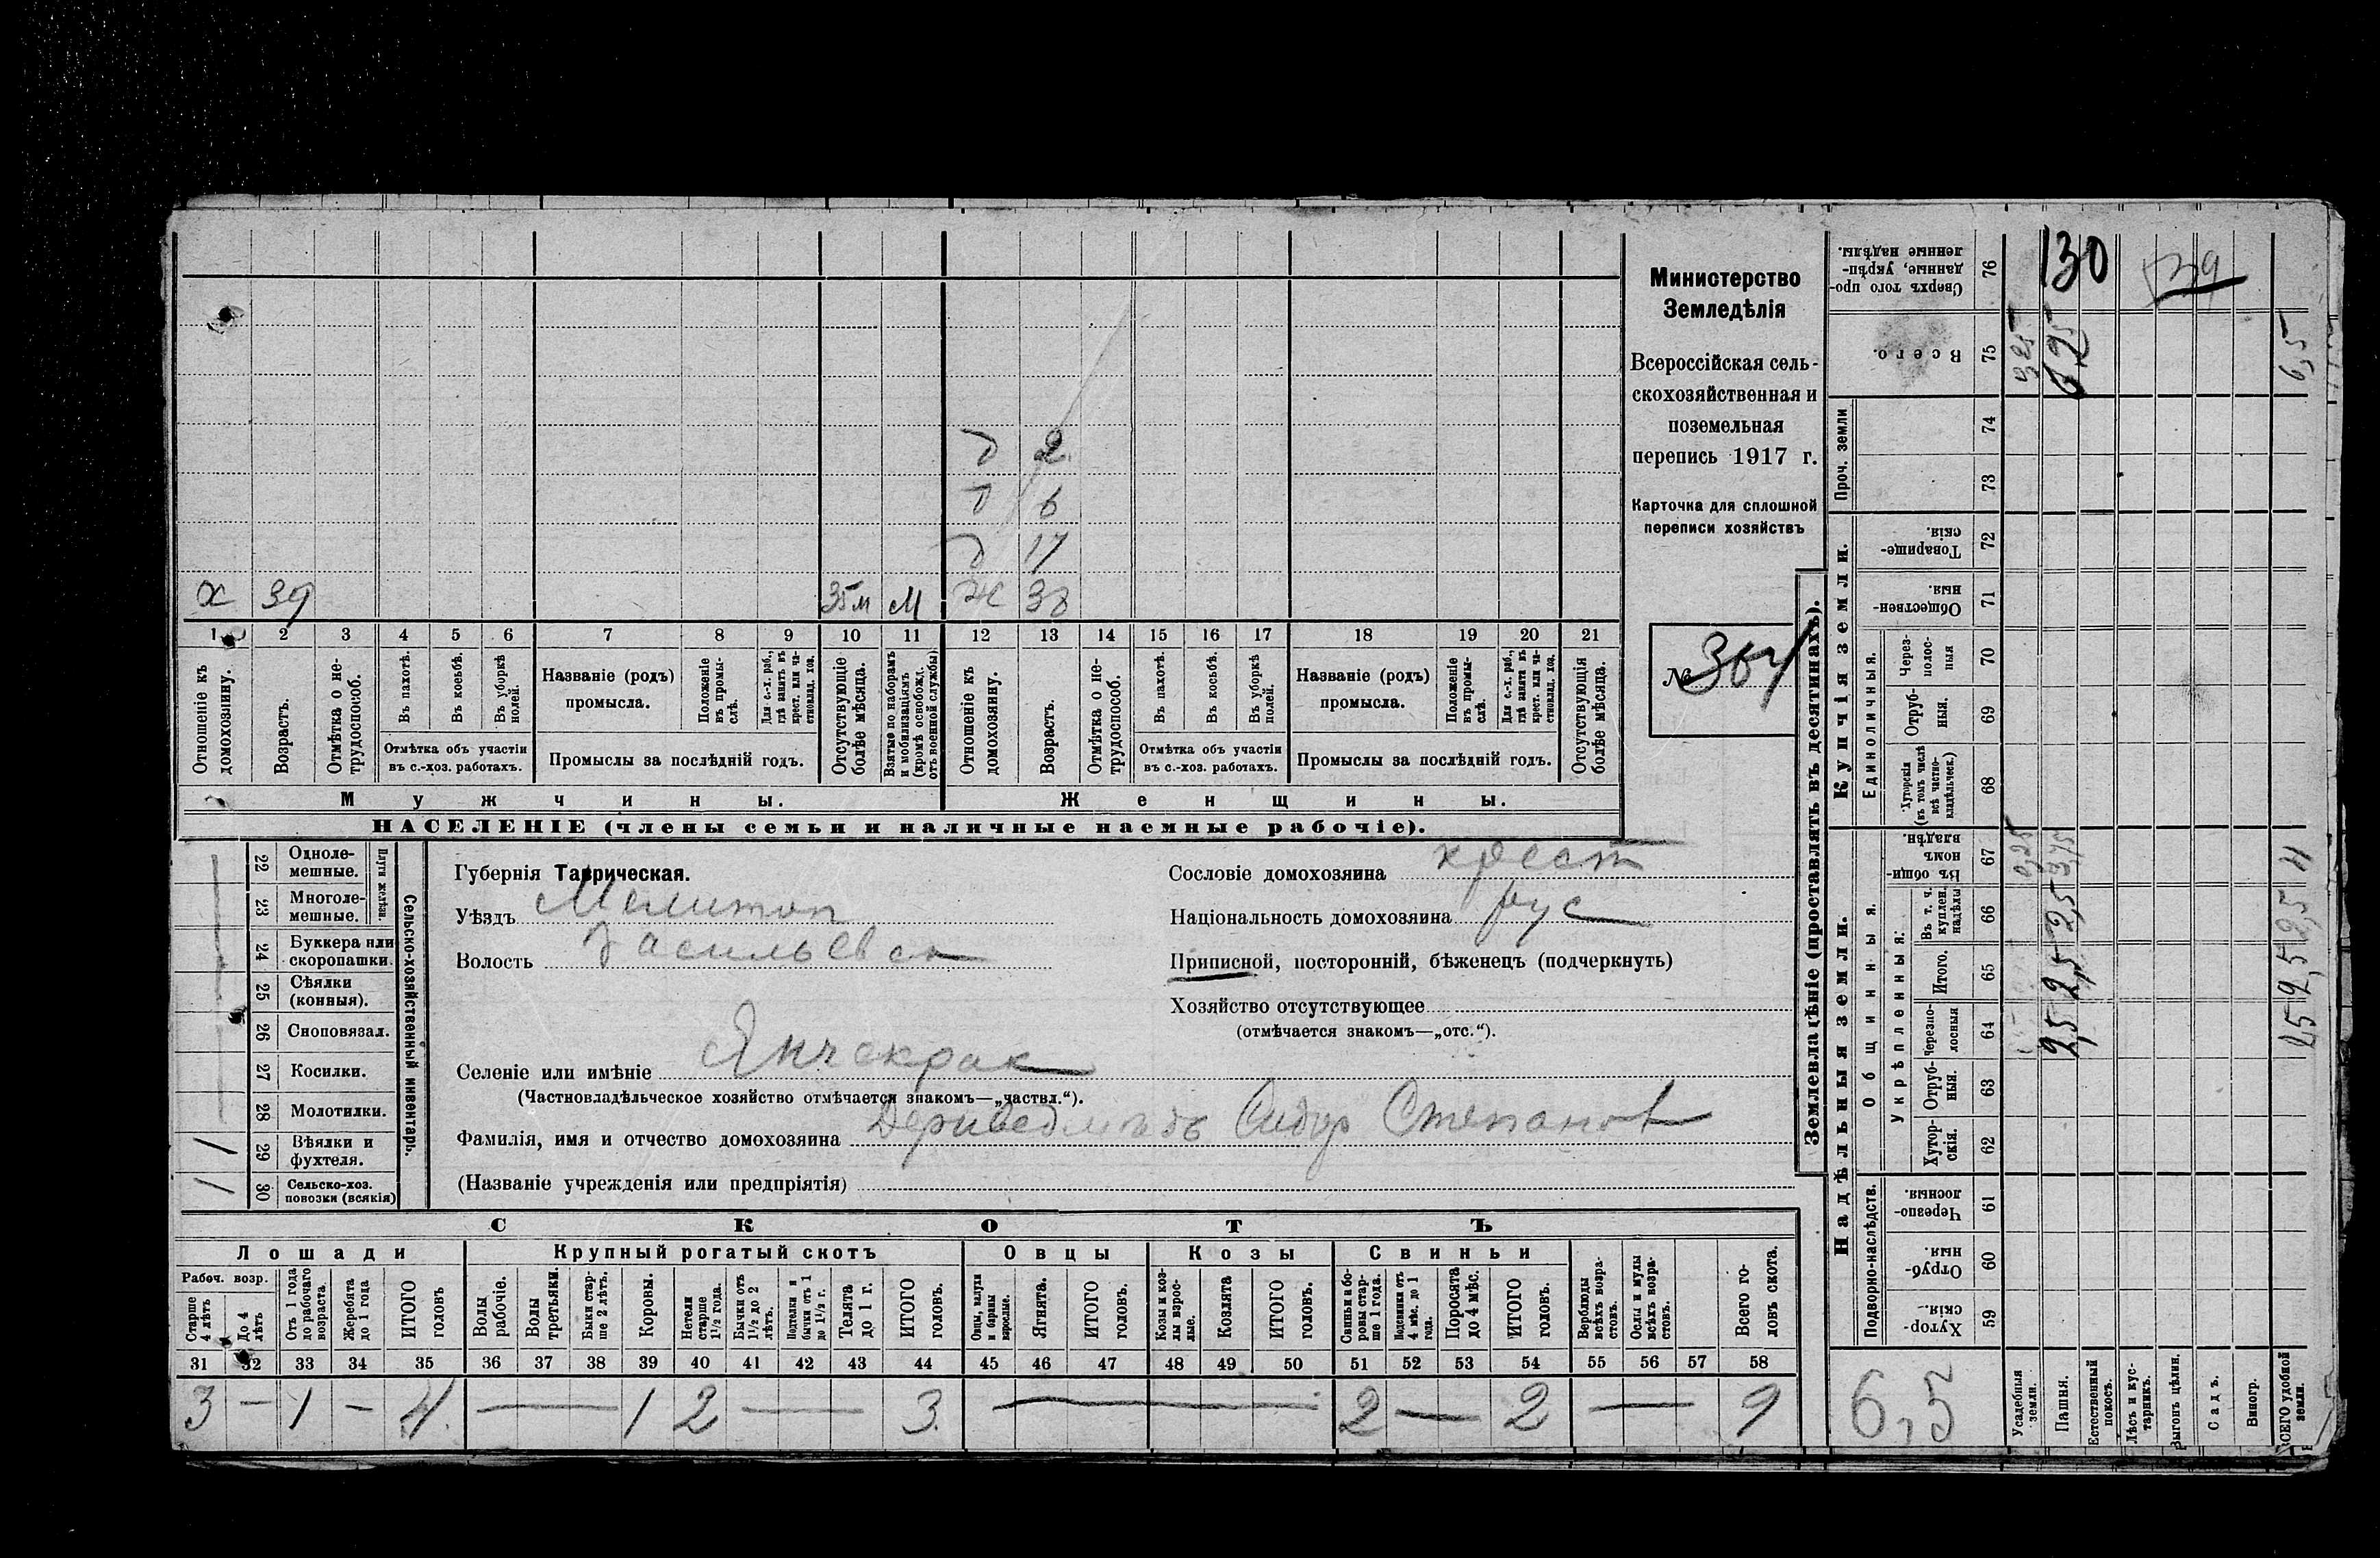 Министерство
Земледѣлія
Всероссійская сель-
скохозяйственная и
поземельная
перепись 1917 г.
Карточка для сплошной
переписи хозяйствъ
№ 364
д 2
д 6
д 17
х 39 35 м м ж 38
1 2 3 4 5 6 7 8 9 10 11 12 13 14 15 16 17 18 19 20 21
Отношеніе къ домохозяину.
Возрастъ.
Отмѣтка о не-трудоспособ.
Въ пахотѣ.
Въ косьбѣ.
Въ уборкѣ полей.
Отмѣтка объ участіи
въ с.-хоз. работахъ.
Названіе (родъ)
промысла.
Положеніе въ промы-слѣ.
Для с.-х. раб., гдѣ занятъ въ крест. или ча-стновлад. хоз.
Промыслы за послѣдній годъ.
Отсутствующіе болѣе мѣсяца.
Взятые по наборамъ и мобилизаціямъ (кромѣ освобожд. отъ военной службы)
Отношеніе къ домохозяину.
Возрастъ.
Отмѣтка о не-трудоспособ.
Въ пахотѣ.
Въ косьбѣ.
Въ уборкѣ полей.
Отмѣтка объ участіи
въ с.-хоз. работахъ.
Названіе (родъ)
промысла.
Положеніе въ промы-слѣ.
Для с.-х. раб., гдѣ занята въ крест. или ча-стновлад. хоз.
Промыслы за послѣдній годъ.
Отсутствующія болѣе мѣсяца.
Мужчины.
Женщины.
НАСЕЛЕНІЕ (члены семьи и наличные наемные рабочіе).
Сельско-хозяйственный инвентарь.
Плуги желѣзн.
22 Одноле-мешные.
23 Многоле-мешные.
24 Буккера или скоропашки.
25 Сѣялки (конныя).
26 Сноповязал.
27 Косилки.
28 Молотилки.
29 Вѣялки и фухтеля. 1
30 Сельско-хоз. повозки (всякія) 1
Губернія Таврическая.
Уѣздъ Мелитоп
Волость Васильевск
Селеніе или имѣніе Янчекрак
(Частновладѣльческое хозяйство отмѣчается знакомъ—„частвл.“).
Фамилія, имя и отчество домохозяина Дериведмидь Сидор Степанов
(Названіе учрежденія или предпріятія)
Сословіе домохозяина крест
Національность домохозяина рус
Приписной, посторонній, бѣженецъ (подчеркнуть)
Хозяйство отсутствующее
(отмѣчается знакомъ—„отс.“).
СКОТЪ
Лошади
Крупный рогатый скотъ
Овцы
Козы
Свиньи
Рабоч. возр.
Старше 4 лѣтъ
До 4 лѣтъ
Отъ 1 года до рабочаго возраста.
Жеребята до 1 года
ИТОГО головъ
Волы рабочіе.
Волы третьяки.
Быки стар-ше 2 лѣтъ.
Коровы.
Нетели старше 1½ года.
Бычки отъ 1½ до 2 лѣтъ.
Подтелки и бычки отъ 1 до 1½ г.
Телята до 1 г.
ИТОГО головъ.
Овцы, валухи и бараны взрослые.
Ягнята.
ИТОГО головъ.
Козы и коз-лы взрос-лые.
Козлята
ИТОГО головъ.
Свиньи и бо-ровы стар-ше 1 года.
Подсвинки отъ 4 мѣс. до 1 года.
Поросята до 4 мѣс.
ИТОГО головъ.
Верблюды всѣхъ возра-стовъ.
Ослы и мулы всѣхъ возра-стовъ.
Всего го-ловъ скота.
31 32 33 34 35 36 37 38 39 40 41 42 43 44 45 46 47 48 49 50 51 52 53 54 55 56 57 58
3 — 1 — 4. — 1 2 — 3. — 2 — 2 — 9
Землевладѣніе (проставлять въ десятинахъ).
Надѣльныя земли.
Купчія земли.
Проч. земли
Подворно-наслѣдств.
Общинныя.
Укрѣпленныя.
Единоличныя.
59 Хутор-скія.
60 Отруб-ныя.
61 Черезпо-лосныя.
62 Хутор-скія.
63 Отруб-ныя.
64 Черезпо-лосныя 2,5
65 Итого. 2,5 2,5
66 Въ т. ч. куплен. надѣлы 2,5 2,5
67 Въ общин-номъ владѣн. 0,25 3,75 4
68 Хуторскія (въ томъ числѣ всѣ частно-владѣльческ.)
69 Отруб-ныя.
70 Через-полос-ныя
71 Обществен-ныя.
72 Товарище-скія.
73
74
75 Всего. 6,5
76 Сверхъ того про-данные, укрѣп-ленные надѣлы.
130
39
6,5
Усадебныя земли.
Пашня.
Естественный покосъ.
Лѣсъ и кус-тарникъ.
Выгонъ цѣлин.
Садъ.
Виногр.
ВСЕГО удобной земли.